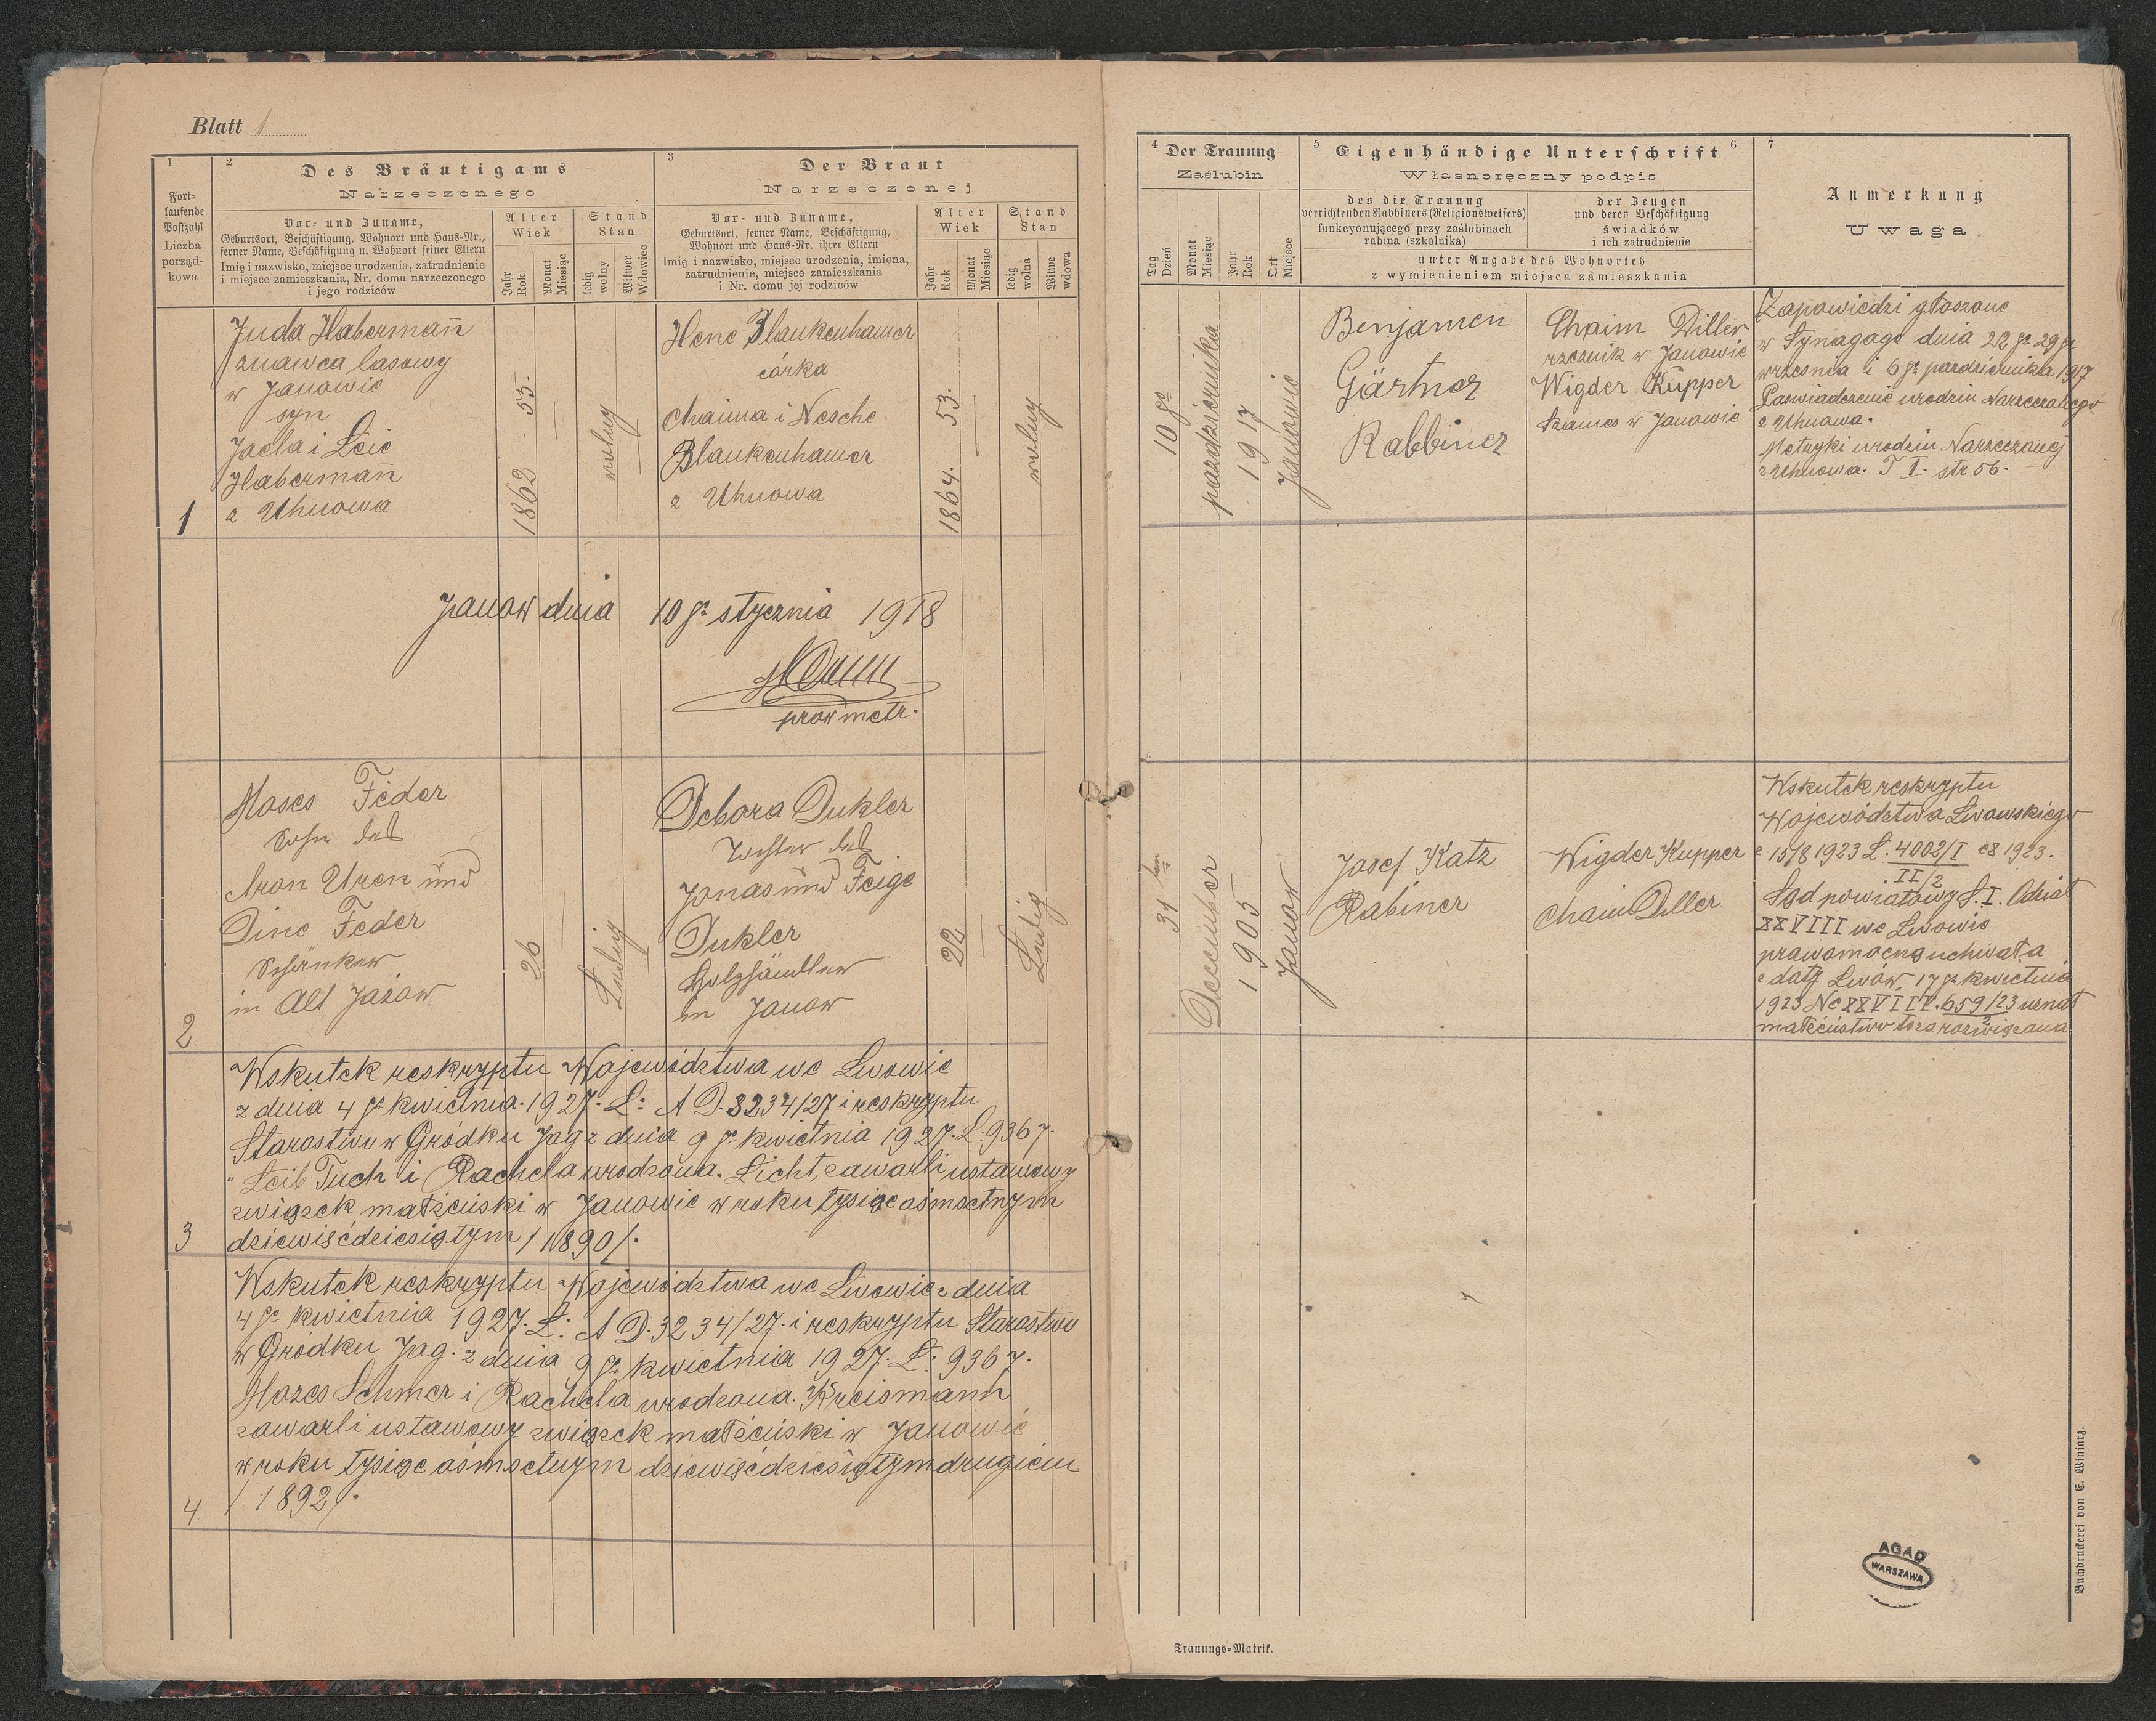 Blatt 1
1
Fort-
laufende
Postzahl
Liczba
porząd-
kowa
2
Des Bräutigams
Narzeczonego
Vor- und Zuname,
Geburtsort, Beschäftigung, Wohnort und Haus-Nr.,
ferner Name, Beschäftigung u. Wohnort seiner Eltern
Imię i nazwisko, miejsce urodzenia, zatrudnienie
i miejsce zamieszkania, Nr. domu narzeczonego
i jego rodziców
Alter
Wiek
Jahr
Rok
Monat
Miesiąc
Stand
Stan
ledig
wolny
Witwer
Wdowiec
3
Der Braut
Narzeczonej
Vor- und Zuname,
Geburtsort, ferner Name, Beschäftigung,
Wohnort und Haus-Nr. ihrer Eltern
Imię i nazwisko, miejsce urodzenia, imiona,
zatrudnienie, miejsce zamieszkania
i Nr. domu jej rodziców
Alter
Wiek
Jahr
Rok
Monat
Miesiąc
Stand
Stan
ledig
wolna
Witwe
wdowa
4
Der Trauung
Zaślubin
Tag
Dzień
Monat
Miesiąc
Jahr
Rok
Ort
Miejsce
5
Eigenhändige Unterschrift
6
Własnoręczny podpis
des die Trauung
verrichtenden Rabbiners (Religionsweisers)
funkcyonującego przy zaślubinach
rabina (szkolnika)
der Zeugen
und deren Beschäftigung
świadków
i ich zatrudnienie
unter Angabe des Wohnortes
z wymienieniem miejsca zamieszkania
7
Anmerkung
Uwaga
1
Juda Habermañ
znawca lasowy
w Janowie
syn
Jacla i Leie
Habermañ
z Uhnowa
1862 . 55.
wolny
Hene Blaukenhamer
córka
Chaima i Nesche
Blaukenhamer
z Uhnowa
1864. 53.
wolny
10go
października
1917
Janowie
Benjamen
Gärtner
Rabbiner
Chaim Diller
rzeznik w Janowie
Wigder Küpper
szames w Janowie
Zapowiedzi głoszone
w Synagogo dnia 22 go 29 go
wrzesnia i 6 go pazdziernika 1917
Poswiadczenie urodzin Narzeczonego
z Uhnowa.
Metryki urodzin Narzeczonej
z Uhnowa. T I. str 56.
Janow dnia 10 go stycznia 1918
prow metr.
2
Moses Feder
Sohn des
Aron Uren und
Dine Feder
Schänker
in Alt Jazow
26
Ledig
Debora Dukler
Tochter des
Jonas und Feige
Dukler
Holzhändler
in Janow
22
Ledig
31 ten
December
1905
Janow
Josef Katz
Rabiner
Wigder Kupper
Chaim Diller
Wskutek reskryptu
Województwa Lwowskiego
z 15/8 1923 L. 4002/I ex 1923.
II/2
Sąd powiatowy S. I. Odział
XXVIII we Lwowie
prawomocną uchwałą
z datą Lwów, 17 go kwietnia
1923 Nc XXVIII. 659/23 uznał
2
małżeństwo to za rozwiązana
3
Wskutek reskryptu Województwa we Lwowie
z dnia 4 go kwietnia 1927. L: A D. 3234/27 i reskryptu
Starostwo w Gródku Jag z dnia 9 go kwietnia 1927. L. 9367.
"Leib Tuch i Rachela urodzona. Licht, zawarli ustawowy
związek małżeński w Janowie w roku tysiąc ośmsetnym
dziewięćdziesiątym /1890/.
4
Wskutek reskryptu Województwa we Lwowie z dnia
4 go kwietnia 1927. L: A D. 3234/27. i reskryptu Starostwo
w Gródku Jag. z dnia 9 go kwietnia 1927. L: 9367.
Mozes Schmer i Rachela urodzona. Kreismann
zawarli ustawowy związek małżeński w Janowie
w roku tysiąc ośmsetnym dziewięćdziesiątym drugiem
/1892/.
AGAD
WARSZAWA
Trauungs-Matrik.
Buchdruckerei von E. Winiarz.